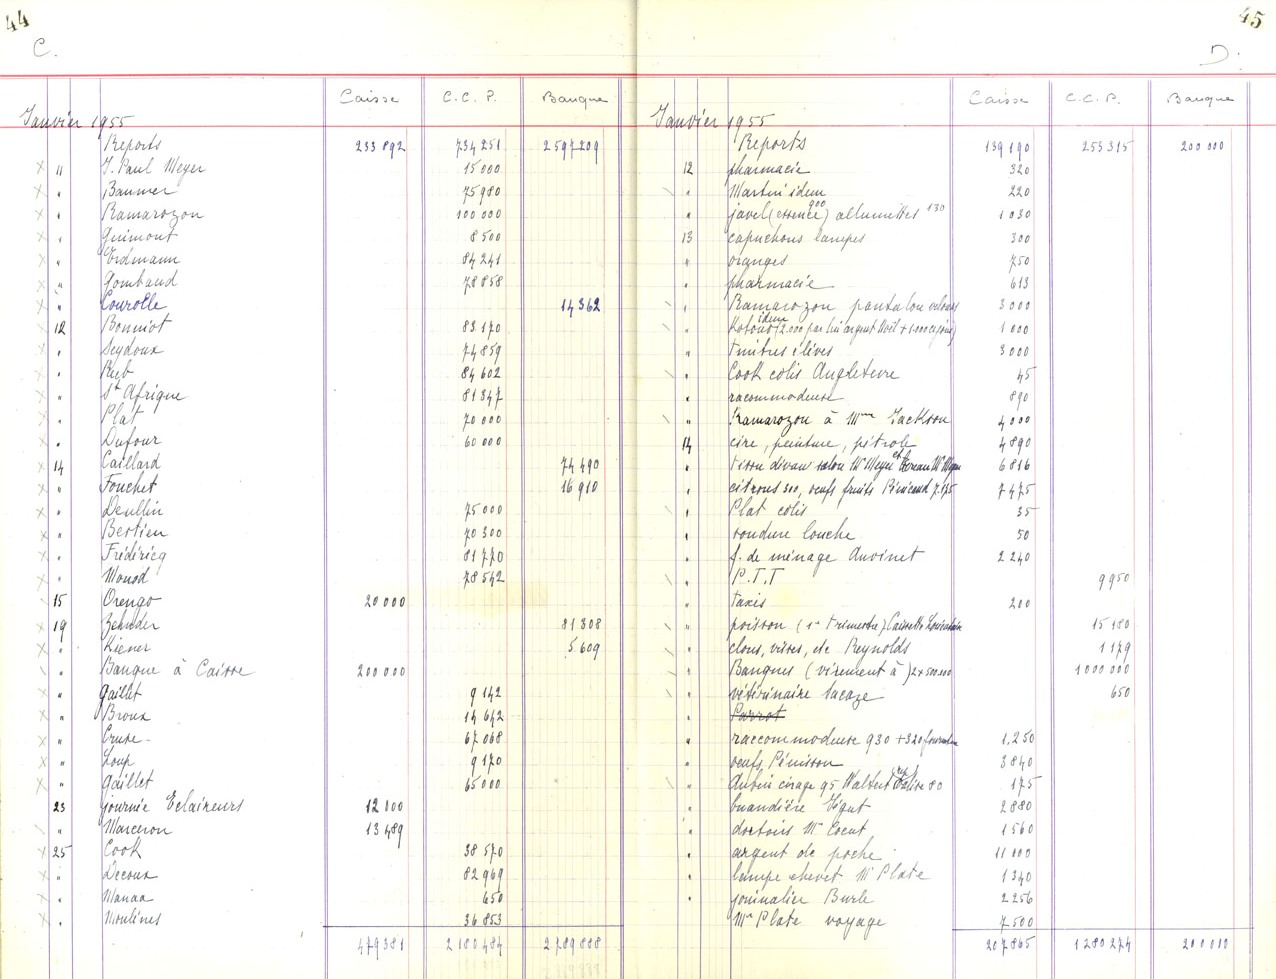 44
C.
Caisse C.C.P. Banque
Janvier 1955
Reports 233 892 734 251 2 597 209
X " J. Paul Meyer 15 000
X " Baumer 75 980
X " Ramarozon 100 000
X " Guimont 8 500
X " Erdmann 84 241
X " Gombaud 78 858
X " Courolle 14 362
X 12 Bonniot 83 170
X " Seydoux 74 859
X " Rueb 84 602
X " St Afrique 81 347
X " Plat 70 000
X " Dufour 60 000
X 14 Caillard 74 490
X " Fouchet 16 910
X " Deullin 75 000
X " Bertieu 70 300
X " Frédéricq 81 770
X " Monod 78 542
15 Orengo 20 000
X 19 Zehnder 81 308
X " Kiener 5 609
" Banque à Caisse 200 000
X " Gaillet 9 142
X " Broux 14 642
X " Cruse - 67 068
X " Loup 9 170
X " Gaillet 65 000
23 journée Eclaireurs 12 000
" Marceron 13 489
X 25 Cook 38 570
X " Decoux 82 969
X " Manaa 650
X " Moulines 36 853
479 381 2 180 484 2 789 888
45
D.
Caisse C.C.P. Banque
Janvier 1955
Reports 139 190 253 315 200 000
12 pharmacie 320
" Martin idem 220
" javel (essence 900) allumettes 130 1 030
13 capuchons lampes 300
" oranges 750
" pharmacie 613
" Ramarozon pantalon velours 3 000
" idem (2.000 par lui argent Noël + 1.000 1 000
" timbres élèves 3 000
" Cook colis Angleterre 45
" racommodeuse 890
" Ramarozon à Mme Jackson 4 000
14 cire, peinture, pétrole 4 890
" tissu divan salon Mr Meyer et bureau Mr Meyer 6 816
" citrons 300, oeufs fruits 7.175 7 475
" Plat colis 35
" soudure louche 50
" f. de ménage Auvinet 2 240
" P.T.T 9950
" taxis 200
" poisson (1er trimestre) 15 180
" clous, vises, etc Reynolds 1 179
" Banques (virement à) 2 x 500.000 1 000 000
" vétérinaire Lacaze 650
" Parrot
" raccommodeuse 930 + 320 fourniture 1,250
" oeufs, Pénisson 3840
" Aubin cirage 95 Walter valise 80 175
" buandière Vigut 2 880
" dortoirs Mr Cocut 1 560
" argent de poche 11 000
" lampe chevet Mr Plate 1 340
" journalier Burle 2 256
Mr Plate voyage 7 500
207 865 1 280 274 200 000